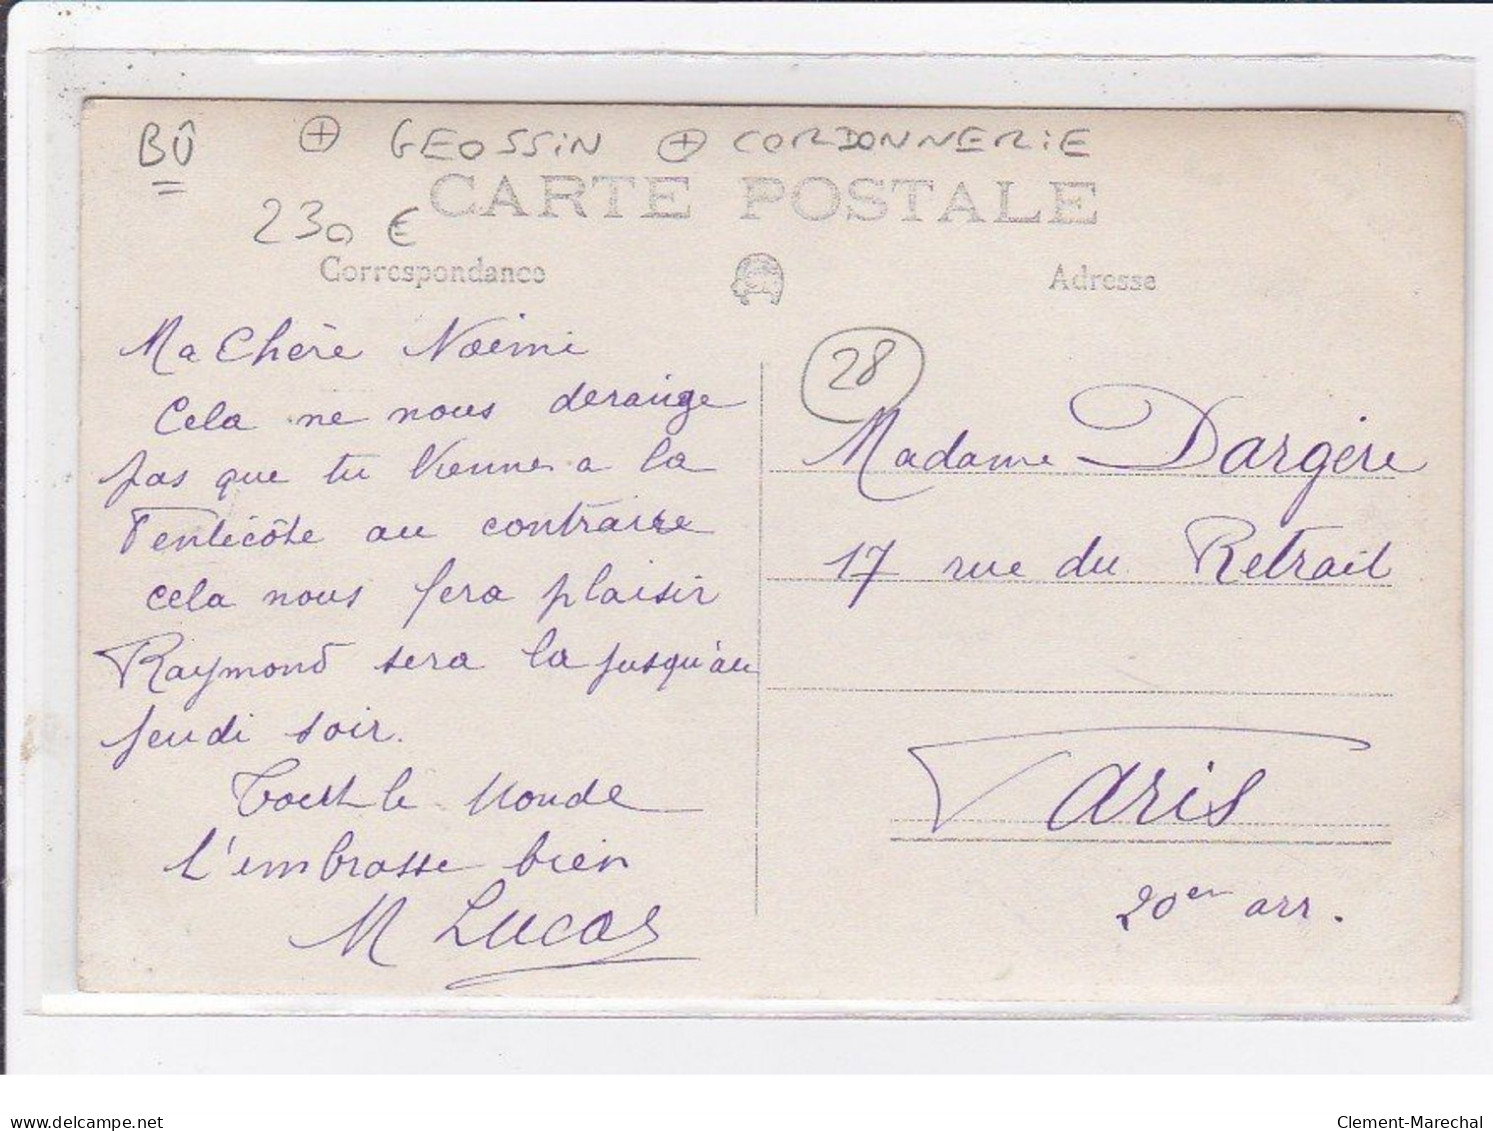 BÛ ⊕ GEOSSIN ⊕ CORDONNERIE
CARTE POSTALE
230 €
Correspondance
Adresse
28
Ma Chère Noémi
Cela ne nous derange
pas que tu viennes a la
Pentecôte au contraire
cela nous fera plaisir
Raymond sera la jusqu'au
jeudi soir.
Tout le Monde
t'embrasse bien
M Lucas
Madame Dargère
17 rue du Retrait
Paris
20er arr.
delcampe.net
Clement-Marechal